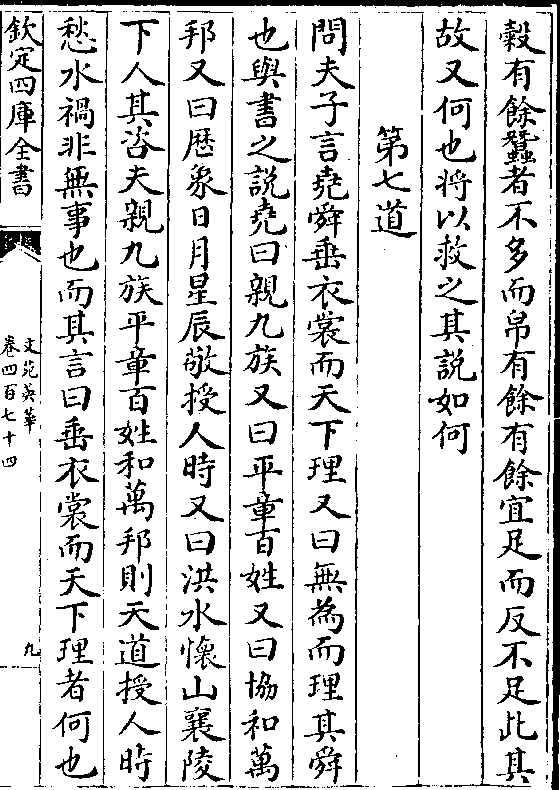 穀有餘蠶者不多而帛有餘有餘宜足而反不足此其
故又何也将以救之其說如何
第七道
問夫子言堯舜垂衣裳而天下理又曰無為而理其舜
也與書之說堯曰親九族又曰平章百姓又曰協和萬
邦又曰厯象日月星辰敬授人時又曰洪水懷山襄陵
下人其咨夫親九族平章百姓和萬邦則天道授人時
愁水禍非無事也而其言曰垂衣裳而天下理者何也
欽定四庫全書
文苑英華
卷四百七十四
九